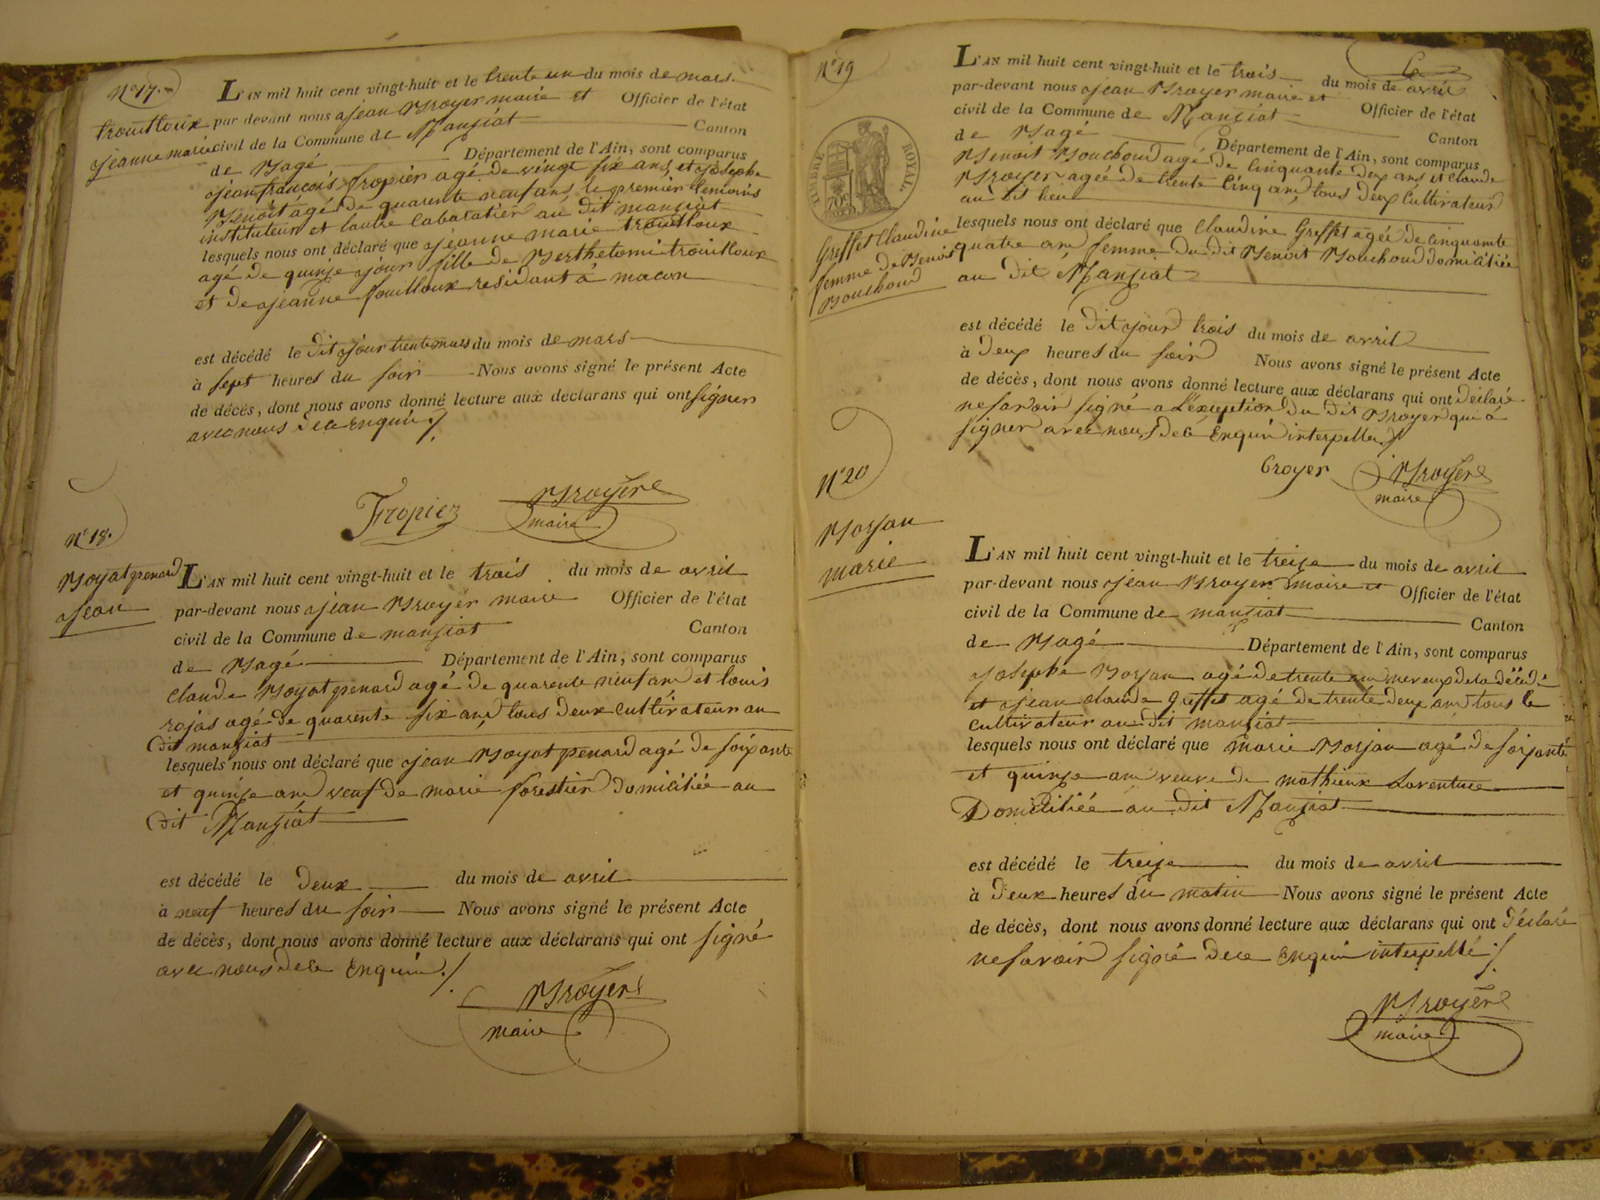 N° 17.
trouilloux
jeanne marie
L'AN mil huit cent vingt-huit et le trente un du mois de mars
par devant nous jean Broyer maire et Officier de l'état
civil de la Commune de Manziat Canton
de Bagé Département de l'Ain, sont comparus
jean françois fropier agé de vingt six ans et josephe
Benoit agé de quarente neuf ans, le premier
instituteur et lautre labaratier au dit manziat
lesquels nous ont déclaré que jeanne marie trouilloux
agé de quinze jour fille de Berthelomi trouilloux
et de jeanne fouilloux residant à macon
est décédé le dit jour trente mars du mois de mars
à sept heures du soir Nous avons signé le présent Acte
de décès, dont nous avons donné lecture aux déclarans qui ont signer
avec nous de ce Enquir
Fropier Broyer
maire
N° 18.
Boyat penard
jean
L'AN mil huit cent vingt-huit et le trois du mois de avril
par-devant nous jean Broyer maire Officier de l'état
civil de la Commune de manziat Canton
de Bagé Département de l'Ain, sont comparus
Claude Boyat penard agé de quarente neuf and et louis
rojas agé de quarente six and tous deux cultivateur au
dit manziat
lesquels nous ont déclaré que jean Boyat penard agé de soixante
et quinze and veuf de marie forestier domicilié au
dit Manziat
est décédé le deux du mois de avril
à neuf heures du soir Nous avons signé le présent Acte
de décès, dont nous avons donné lecture aux déclarans qui ont signé
avec nous de ce Enquir
Broyer
maire
N° 19
6
TIMBRE ROYAL
70c
Greffet Claudine
femme de Benoit
Bouchoud
L'AN mil huit cent vingt-huit et le trois du mois de avril
par-devant nous jean Broyer maire et Officier de l'état
civil de la Commune de Manziat Canton
de Bagé Département de l'Ain, sont comparus
Benoit Bouchoud agé de cinquante deux ans et claude
Broyer agée de trente cinq and tous deux Cultivateurs
au dit lieu
lesquels nous ont déclaré que Claudine Greffet agée de cinquante
quatre and femme du dit Benoit Bouchoud domiciliée
au dit Manziat
est décédé le dit jour trois du mois de avril
à deux heures du soir Nous avons signé le présent Acte
de décès, dont nous avons donné lecture aux déclarans qui ont déclaré
ne savoir signé a L'exception du dit Broyer qui à
signer avec nous de ce Enquir interpeller
Broyer Broyer
maire
N° 20
Borjan
marie
L'AN mil huit cent vingt-huit et le treize du mois de avril
par-devant nous jean Broyer maire et Officier de l'état
civil de la Commune de manziat Canton
de Bagé Département de l'Ain, sont comparus
josephe Borjan agé de trente neveux de la décédé
et jean claude Greffet agé de trente deux and tous le
cultivateur au dit manziat
lesquels nous ont déclaré que marie Borjan agé de soixante
et quinze and veuve de mathieux Laventure
Domiciliée au dit Manziat
est décédé le treize du mois de avril
à deux heures du matin Nous avons signé le présent Acte
de décès, dont nous avons donné lecture aux déclarans qui ont déclaré
ne savoir signé de ce Enquir interpellé
Broyer
maire